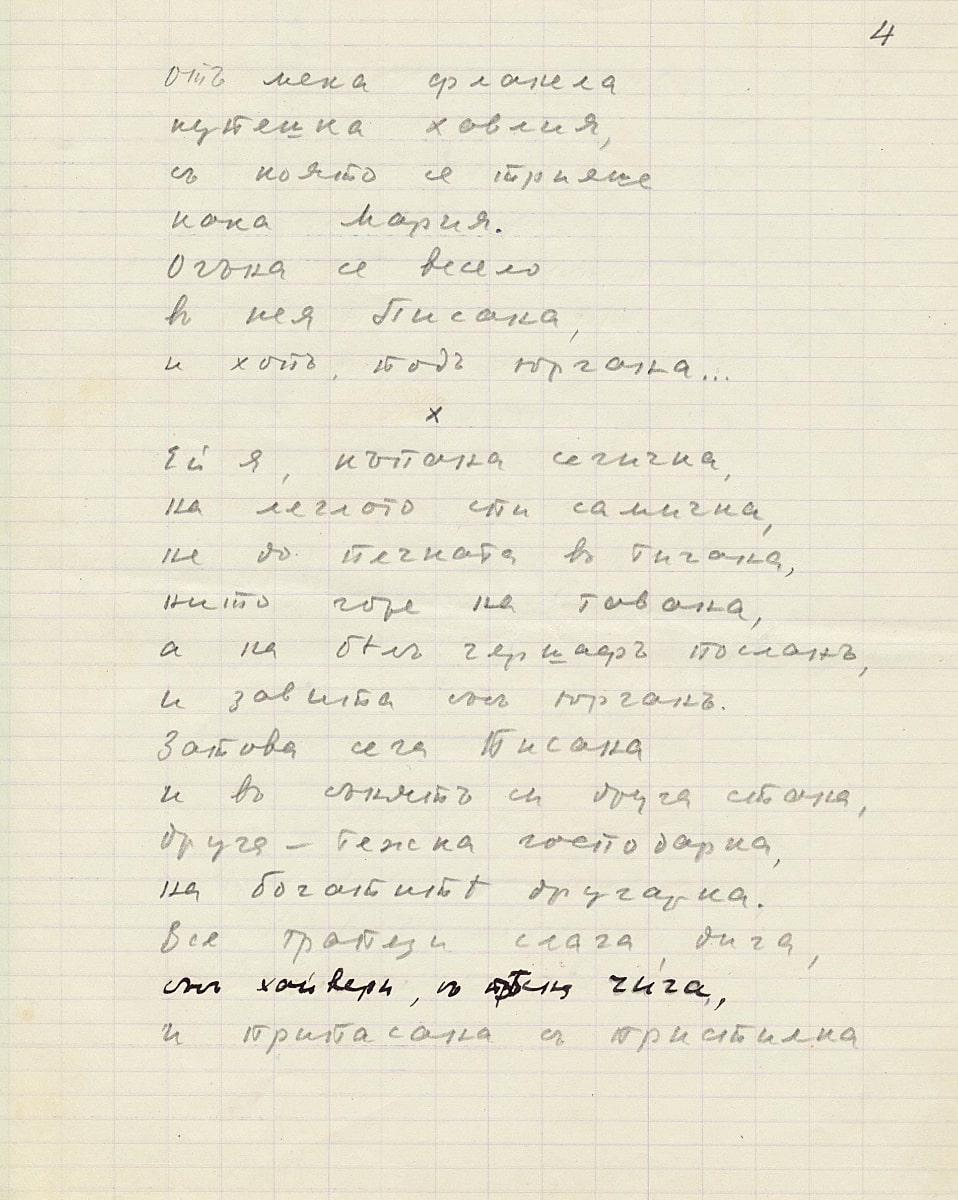 4
отъ мека фланела
кутешка хавлия,
съ която се трияше
кака Мария.
Огъна се весело
въ нея Писана,
и хопъ, подъ юргана...
х
Ей я, къпана сегичка,
на леглото спи самичка,
не до печката въ тигана,
нито горе на тавана,
а на бѣлъ чершафъ посланъ,
и завита съсъ юрганъ.
Затова сега Писана
и въ сънятъ си друга стана,
друга – тежка господарка,
на богатитѣ другарка.
Все трапези слага, дига,
съсъ хайвери, съ чига,
и припасана съ пристилка